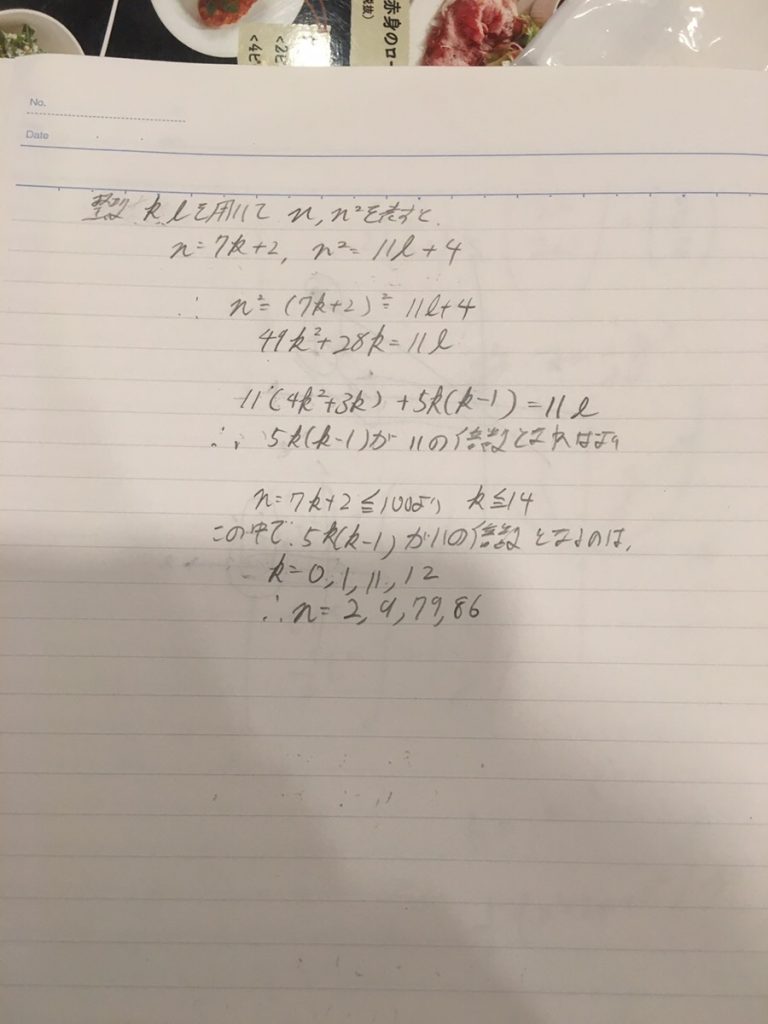 赤身のロー
税抜)
<2ピ
<4ピ
No.
Date
整数 k, lを用いて n, n²を表すと、
n=7k+2, n²=11l+4
∴ n²=(7k+2)²=11l+4
49k²+28k=11l
11(4k²+3k)+5k(k-1)=11l
∴, 5k(k-1)が11の倍数となればよい
n=7k+2≦100より k≦14
この中で、5k(k-1)が11の倍数となるのは、
k=0,1,11,12
∴n=2,9,79,86